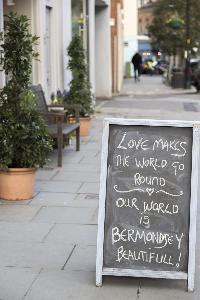 LOVE MAKES
THE WORLD GO
ROUND
OUR WORLD
IS
BERMONDSEY
BEAUTIFULL!